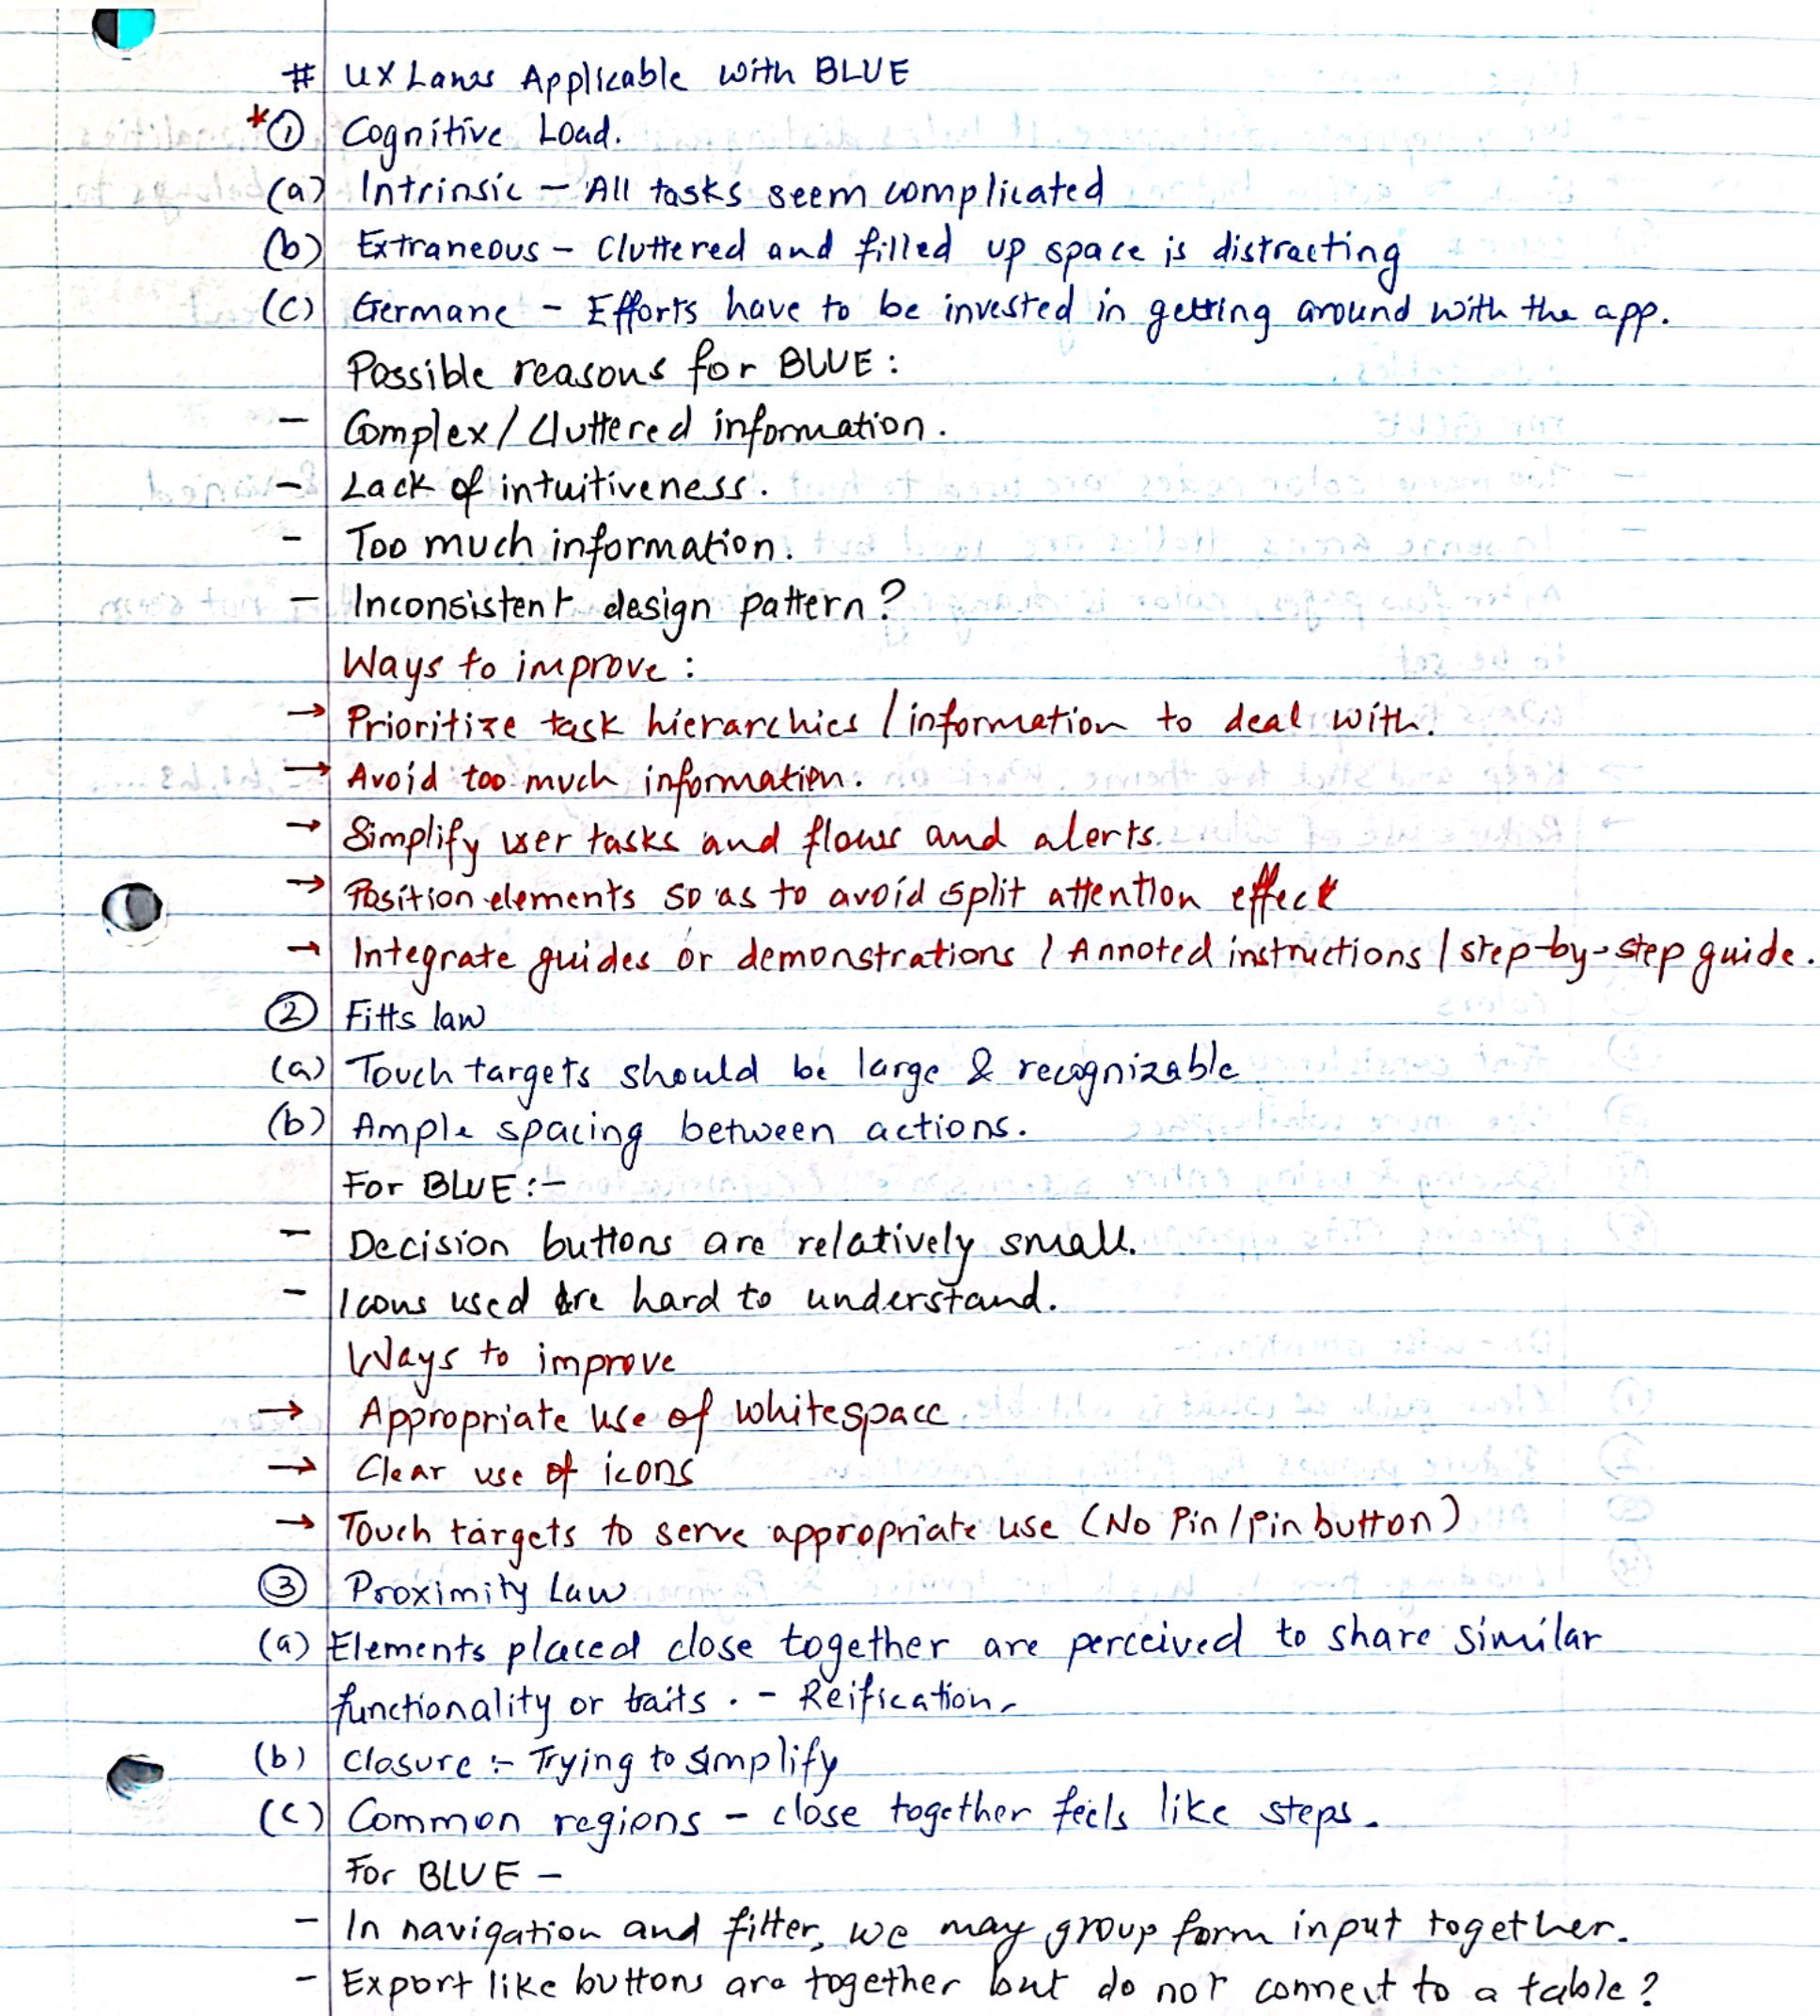 # UX Laws Applicable with BLUE
* ① Cognitive Load.
(a) Intrinsic - All tasks seem complicated
(b) Extraneous - Cluttered and filled up space is distracting
(c) Germane - Efforts have to be invested in getting around with the app.
Possible reasons for BLUE :
- Complex / Cluttered information.
- Lack of intuitiveness.
- Too much information.
- Inconsistent design pattern?
Ways to improve :
→ Prioritize task hierarchies / information to deal with.
→ Avoid too much information.
→ Simplify user tasks and flows and alerts.
→ Position elements so as to avoid split attention effect
→ Integrate guides or demonstrations / Annoted instructions / step-by-step guide.
② Fitts law
(a) Touch targets should be large & recognizable
(b) Ample spacing between actions.
For BLUE :-
- Decision buttons are relatively small.
- Icons used are hard to understand.
Ways to improve
→ Appropriate use of whitespace
→ Clear use of icons
→ Touch targets to serve appropriate use (No Pin / Pin button)
③ Proximity Law
(a) Elements placed close together are perceived to share similar
functionality or traits. - Reification.
(b) Closure :- Trying to simplify
(c) Common regions - close together feels like steps.
For BLUE -
- In navigation and filter, we may group form input together.
- Export like buttons are together but do not connect to a table?